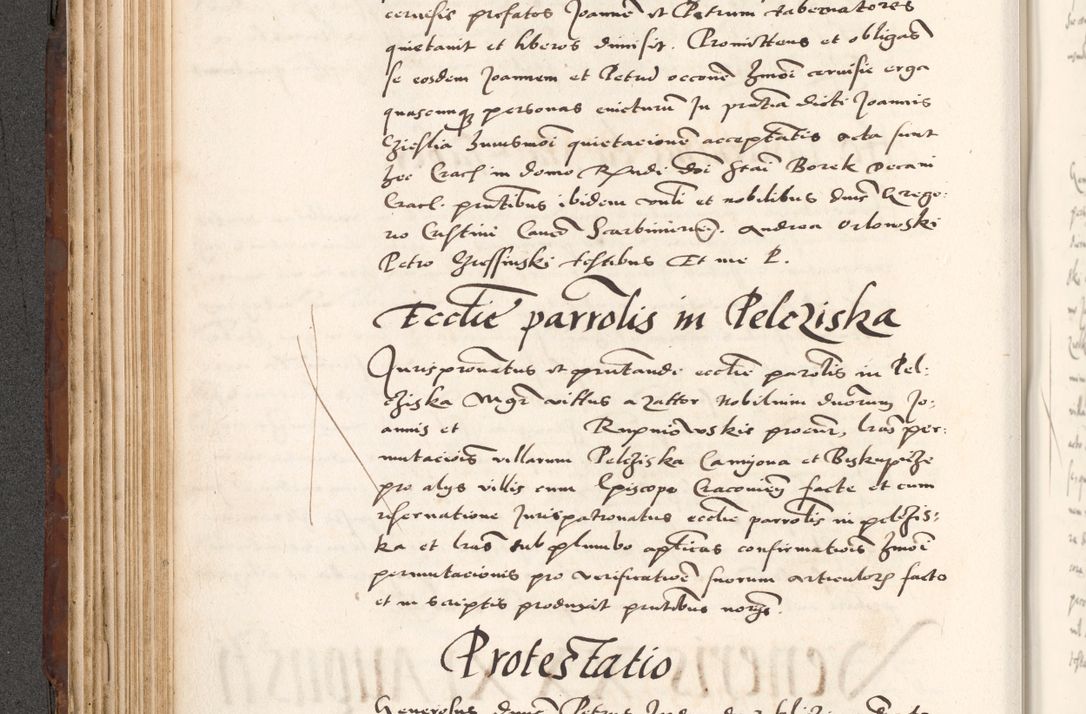 cervisie prefatos Joannē et Petrum tabernatores
quietavit et liberos dimisit. Promittens et obligās
se eosdem Joannem et Petrū occōne hmōi cervisie erga
quascumq personas evicturū In prntia dicti Joannis
huiusmōi quietacionē acceptātis Acta sunt
hec Crac̄ in domo Rndi dni Stani Borek Decani
Crac̄. prntibus ibidem vnli et nobilibus dnis Grego-
rio Cristini Canco Scarbimirien̄. Andrea Orlowski
Petro testibus Et me P.
Ecclie parrolis in Pelcziska
Jurispronatus et prntande ecclie parolis in Pel-
cziska Mgr vittus a zator nobilium duorum Jo-
annis et Rupniowskis procur, lras per-
mutacionis villarum Pelcziska Camyona et Biskupicze
pro alys villis cum Episcopo Cracovien̄ facte et cum
reservatione Jurispatronatus ecclie parrolis in pelczis-
ka et lras sub plumbo aplicas confirmationis hmōi
permutacionis pro verificatione suorum articulorꝫ facto
et in scriptis produxit prntibus
Protestatio
Generosus dnus Petrus